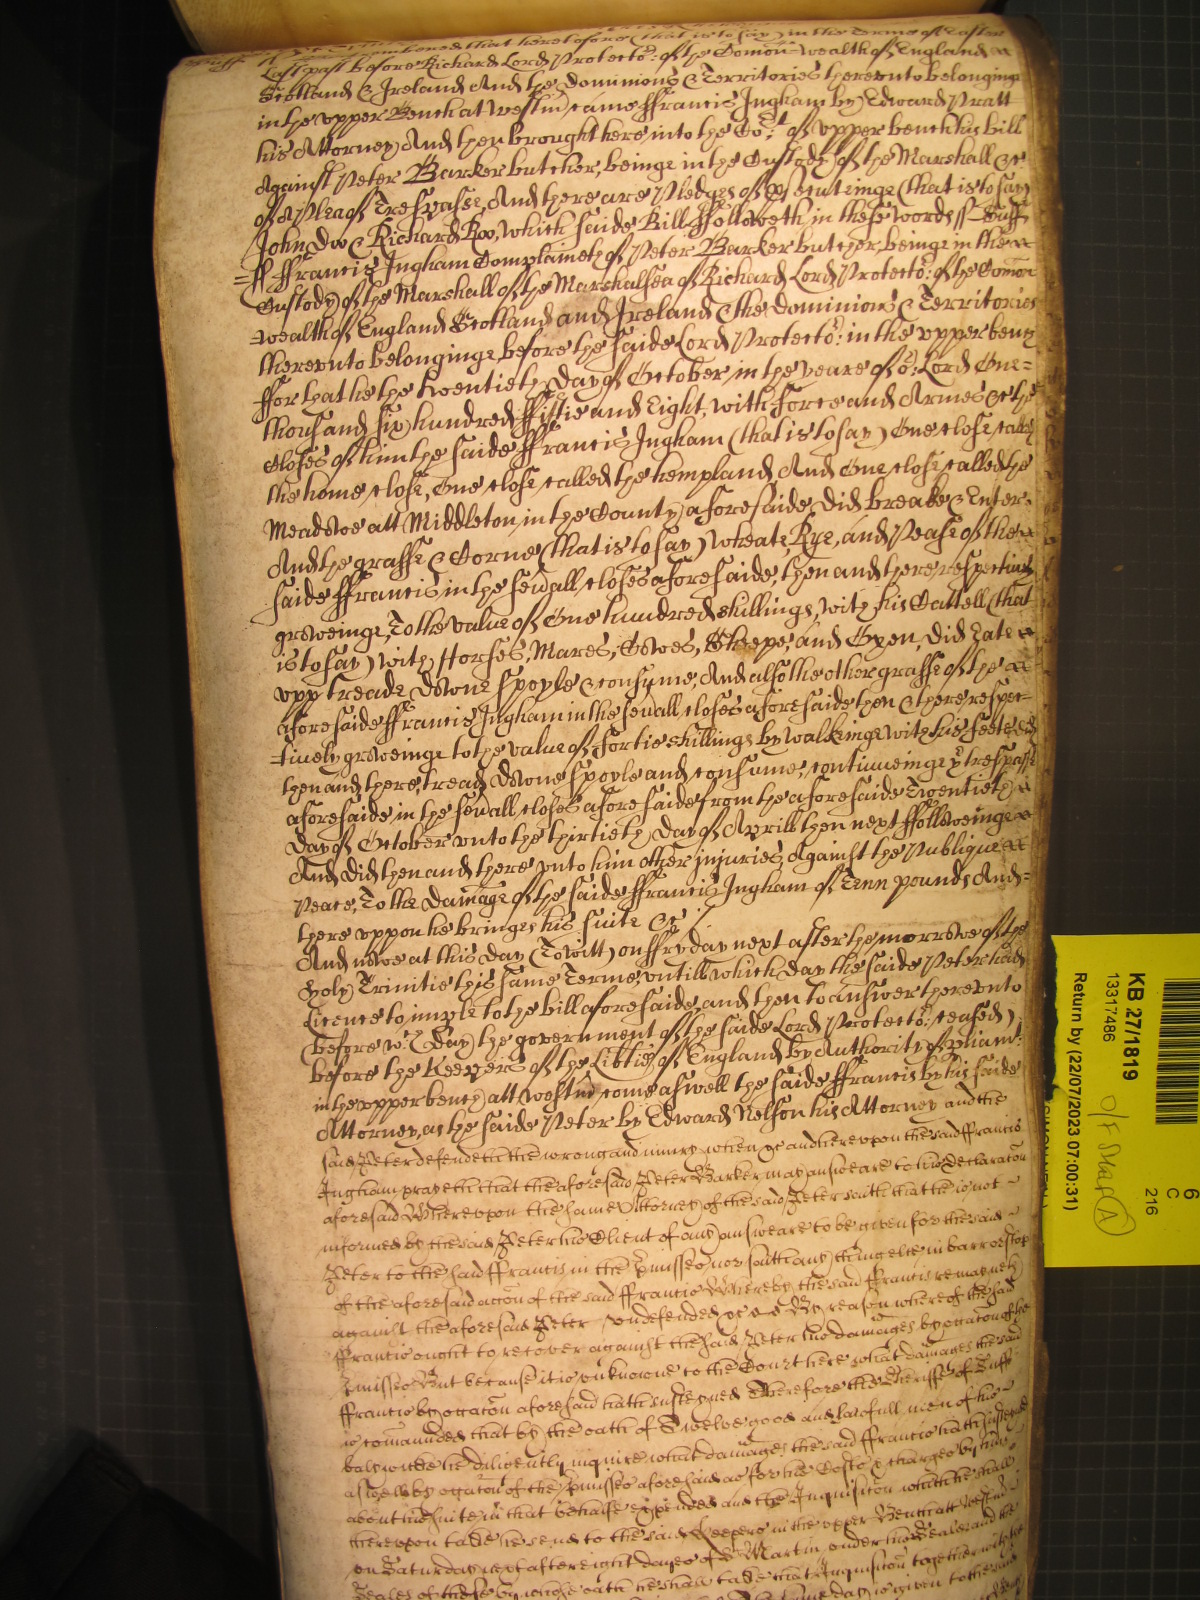 Suff ss Be it remembred that heretofore (that is to say) in the Terme of Easter
Last past before Richard Lord Protector: of the Comon=wealth of England
Scotland & Ireland And the dominions & Territories therevnto belonginge
in the vpper Bench at Westm came ffrancis Ingham by Edward Pratt
his Attorney And then brought here into the Co:rt of vpper bench his bill
Against Peter Barker butcher, beinge in the Custody of the Marshall &c
of A plea of Trespasse, And there are Pledges of Prosecutinge (that is to say)
John Doo & Richard Roo, which saide Bill ffolloweth in these words ss Suff
=ss ffrancis Ingham Complaineth of Peter Barker butcher, beinge in the
Custody of the Marshall of the Marshalsea of Richard Lord Protecto:r of the Comon
=wealth of England Scotland and Ireland & the dominions & Territories
therevnto belonginge, before the saide Lord Protecto:r in the vpper bench
ffor that he the twentieth day of October, in the yeare of o:r Lord One=
thousand six hundred ffiftie and Eight, with force and Armes &c the
Closes of him the saide ffrancis Ingham (that is to say) One close called
the home close, One close called the hempland And One close called the
Meadowe att Middleton, in the County aforesaide, did breake & Enter.
And the grasse & Corne (that is to say) wheate, Rye, and Pease of the
saide ffrancis in the seuall closes aforesaide, then and there respectiuely
groweinge, To the value of One hundred shillings, with his Cattell (that
is to say) with Horses, Mares, Cowes, Sheepe, and Oxen, did Eate
vpp treade downe spoyle & consume, And also the other grasse of the
aforesaide ffrancis Ingham in the seuall closes aforesaide then & there respec=
=tiuely groweinge to the value of fortie shillings by walkeinge with his feete did
then and there, tread downe spoyle and consume, continueinge ye trespasse
aforesaide in the seuall closes aforesaide from the aforesaide Twentieth
day of October vnto the thirtieth day of Aprill then next ffolloweinge
And did then and there vnto him other injuries, Against the Publique
Peace, To the damage of the saide ffrancis Ingham of Tenn pounds And=
there vppon he bringes his suite &c /
And nowe at this day (To witt) on ffryday next after the morrowe of the
holy Trinitie this same Terme, vntill which day the saide Peter had
Licence to imple to the bill aforesaide, and then to answer therevnto
(before wch day) the government of the saide Lord Protecto:r ceased)
before the Keepers of the Libtie of England by Authority of pliam:t
in the vpper bench att westm come aswell the saide ffrancis by his saide
Attorney, as the saide Peter by Edward Nelson his Attorney and the
said Peter defendeth the wrong and iniury when &c and therevpon the said ffrancis
Ingham prayeth that the aforesaid Peter Barker may answeare to his declaracon
aforesaid Wherevpon the same Attorney of the said Peter saith that he is not
informed by the said Peter his Client of any answeare to be given for the said
Peter to the said ffrancis in the pmisses nor saith any thing else in barr or stop
of the aforesaid accon of the said ffrancis Whereby the said ffrancis remayneth
against the aforesaid Peter vndefended &c By reason whereof the said
ffrancis ought to recover against the said Peter his damages by occacon of the
pmisses But because it is vnknowne to the Court here what damages the said
ffrancis by occacon aforesaid hath susteyned Therefore the Sheriffe of Suff
is comaunded that by the oath of Twelve good and lawfull men of his
baliwicke he diligently inquire what damages the said ffrancis hath susteyned
aswell by occacon of the pmisses aforesaid as for his Costs & charges by him
about his suite in that behalfe expended and the Inquisicon which he shall
therevpon take he send to the said Keepers in the vpper Bench att Westm
on Saturday next after eight dayes of St Martin vnder his Seale and the
Seales of those by whose oath he shall take that Inquisicon together with the
KB 27/1819
13317486
Return by (22/07/2023 07:00:31)
6
C
216